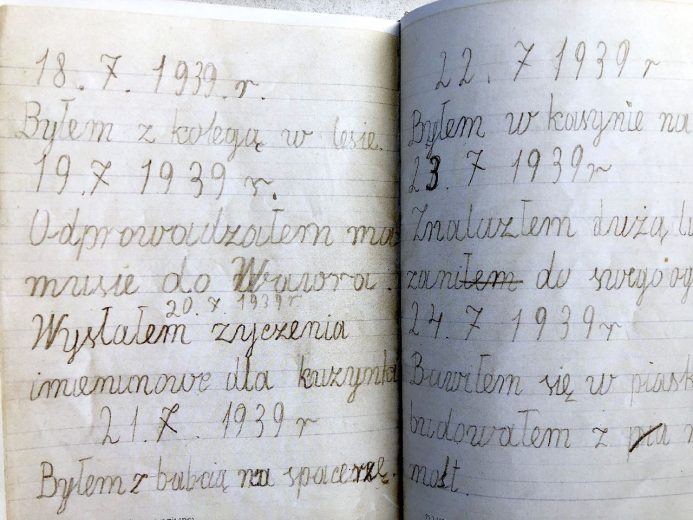 18. 7. 1939. r.
Byłem z kolegą w lesie.
19.7 1939 r.
Odprowadzałem ma
musie do Wawora.
20. 7. 1939 r
Wysłałem zyczenia
imieninowe dla kuzynki
21. 7. 1939 r
Byłem z babcią na spacerzę.
22. 7 1939 r
Byłem w kasynie na
23. 7 1939 r
Znalazłem dużą
zaniłem do swego og
24. 7 1939 r
Bawiłem się w piask
budowałem z pia
most.